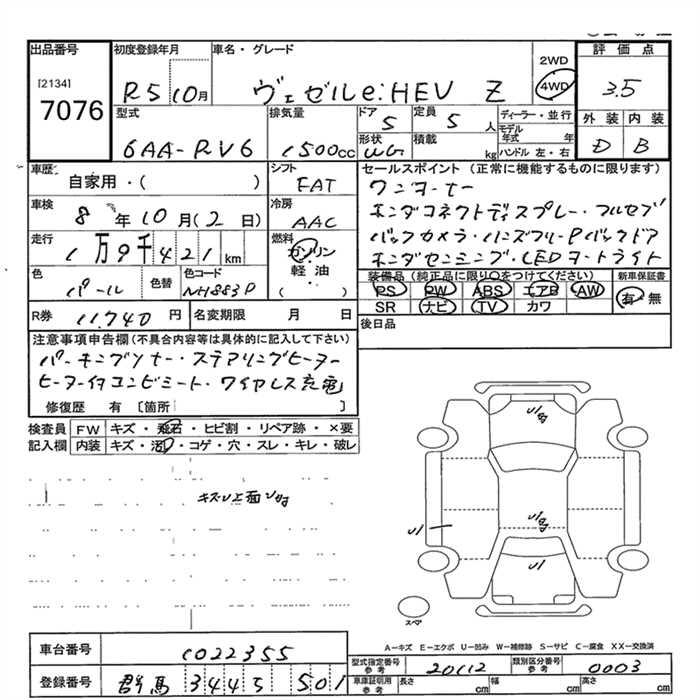 出品番号 初度登録年月 車名・グレード 2WD 評価点
[2134] R5 10月 ヴェゼルe:HEV Z 4WD 3.5
7076 型式 排気量 ドア 定員 ディーラー・並行 外装 内装
6AA-RV6 1500cc 5 5人 モデル年式 年 D B
形状 積載 ハンドル 左・右
WG kg
車歴 シフト セールスポイント (正常に機能するものに限ります)
自家用・( ) FAT ワンオーナー
車検 冷房 ホンダコネクトディスプレー・フルセグ
8年10月(2日) AAC バックカメラ・ハンズフリーPバックドア
走行 燃料 ホンダセンシング・LEDヘッドライト
1万9千421km ガソリン 軽油・( )
色 色替 色コード 装備品(純正品に限り○をつけてください) 新車保証書
パール NH883P PS PW ABS エアB AW 有・無
SR ナビ TV カワ
R券 11,740円 名変期限 月 日 後日品
注意事項申告欄(不具合内容等は具体的に記入して下さい)
パーキングソナー・ステアリングヒーター
ヒーター付コンビシート・ワイヤレス充電
修復歴 有 [箇所 ]
検査員 FW キズ・飛石・ヒビ割・リペア跡・×要
記入欄 内装 キズ・汚・コゲ・穴・スレ・キレ・破レ
U1
U1
U1
スペア
A-キズ E-エクボ U-凹み W-補修跡 S-サビ C-腐食 XX-交換済
車台番号 1022355 型式指定番号 参考 20112 類別区分番号 参考 0003
登録番号 群馬 344 5 501 車庫証明用 参考 長さ cm 幅 cm 高さ cm